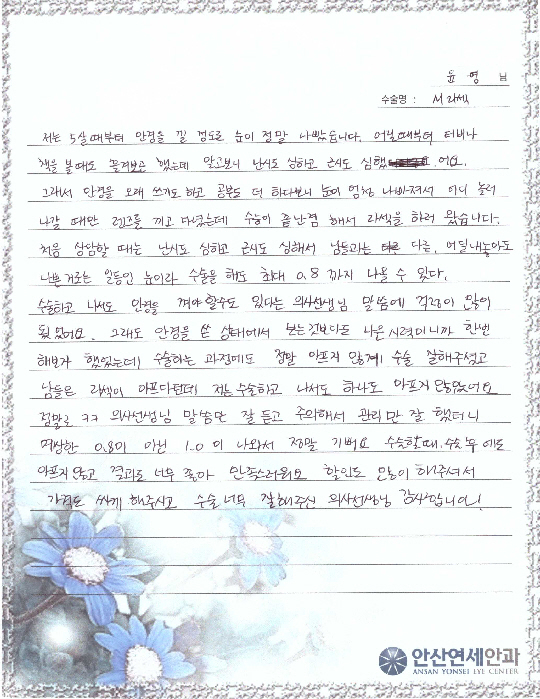 윤 영 님
수술명 : M라섹
저는 5살때부터 안경을 낄 정도로 눈이 정말 나빴습니다. 어렸을때부터 티비나
책을 볼때도 째려보고 했는데 알고보니 난시도 심하고 근시도 심했어요.
그래서 안경을 오래 쓰기도 하고 공부도 더 하다보니 눈이 엄청 나빠져서 어디 놀러
나갈 때만 렌즈를 끼고 다녔는데 수능이 끝난겸 해서 라섹을 하러 왔습니다.
처음 상담할 때는 난시도 심하고 근시도 심해서 남들과는 다른, 어딜내놓아도
나쁜거로는 일등인 눈이라 수술을 해도 최대 0.8 까지 나올 수 있다.
수술하고 나서도 안경을 껴야 할수도 있다는 의사선생님 말씀에 걱정이 많이
됬었어요. 그래도 안경을 쓴 상태에서 보는것보다도 나은 시력이니까 한번
해보자 했었는데 수술하는 과정에도 정말 아프지 않게 수술 잘해주셨고
남들은 라섹이 아프다던데 저는 수술하고 나서도 하나도 아프지 않았었어요
정말로 ㅋㅋ 의사선생님 말씀만 잘 듣고 주의해서 관리만 잘 했더니
예상한 0.8이 아닌 1.0 이 나와서 정말 기뻐요 수술할때, 수술 후 에도
아프지 않고 결과도 너무 좋아 만족스러워요 할인도 많이 해주셔서
가격도 싸게 해주시고 수술 너무 잘해주신 의사선생님 감사합니다!
안산연세안과
ANSAN YONSEI EYE CENTER